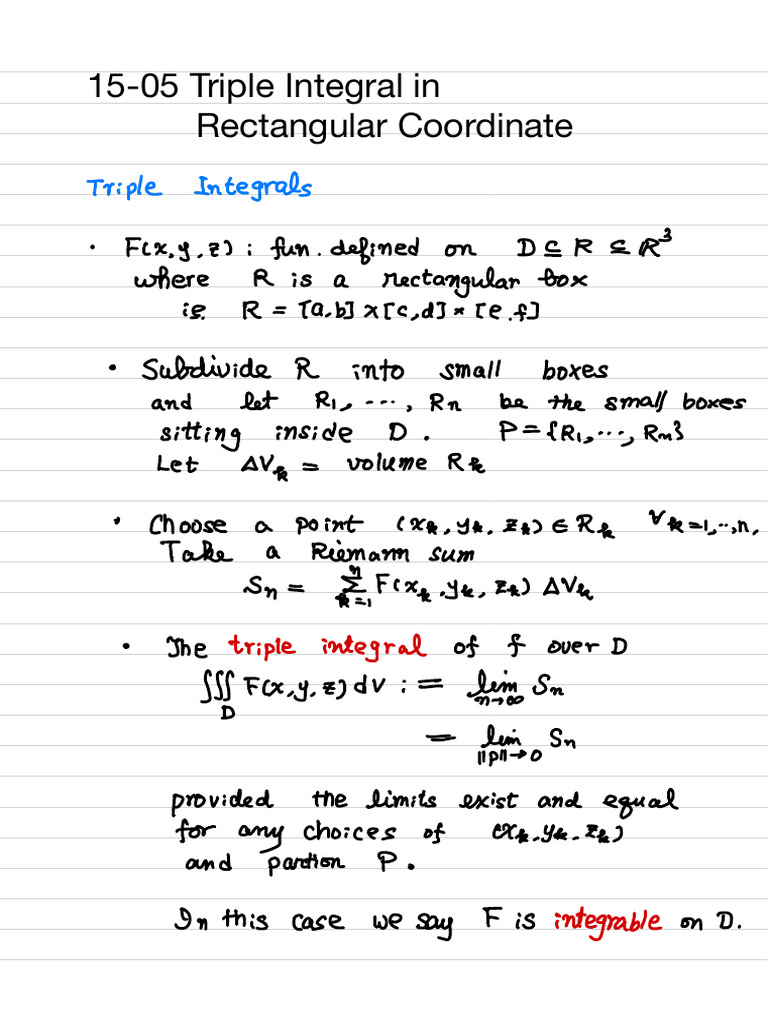 15-05 Triple Integral in
Rectangular Coordinate
Triple Integrals
• F(x,y,z) : fun. defined on D ⊆ R ⊆ ℝ³
where R is a rectangular box
ie. R = [a,b] × [c,d] × [e,f]
• Subdivide R into small boxes
and let R₁, ..., Rn be the small boxes
sitting inside D. P = {R₁, ..., Rn}
Let ΔVₖ = volume Rₖ
• Choose a point (xₖ, yₖ, zₖ) ∈ Rₖ ∀ₖ=1,..,n,
Take a Riemann sum
Sₙ = ∑ₖ₌₁ⁿ F(xₖ, yₖ, zₖ) ΔVₖ
• The triple integral of f over D
∭_D F(x,y,z) dV := lim_{n→∞} Sₙ
= lim_{||P||→0} Sₙ
provided the limits exist and equal
for any choices of (xₖ, yₖ, zₖ)
and partion P.
In this case we say F is integrable on D.